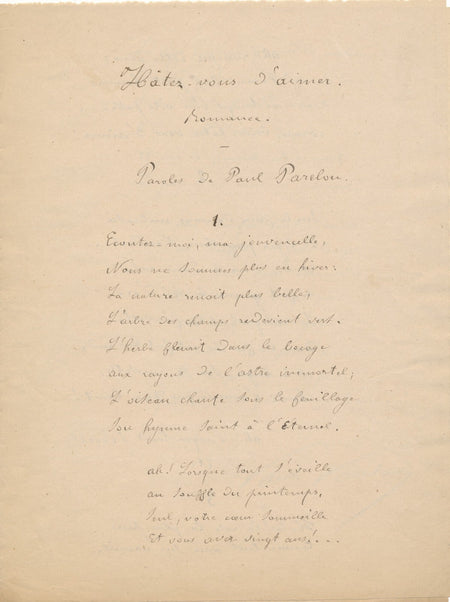 Hâtez-vous d'aimer.
Romance.
Paroles de Paul Parelon.
1.
Ecoutez-moi, ma jouvencelle,
Nous ne sommes plus en hiver:
La nature renait plus belle,
L'arbre des champs redevient vert.
L'herbe fleurit dans le bocage
aux rayons de l'astre immortel;
L'oiseau chante sous le feuillage
Son hymne saint à l'Eternel.
ah! Lorsque tout s'éveille
au souffle du printemps,
Seul, votre cœur sommeille
Et vous avez vingt ans!...